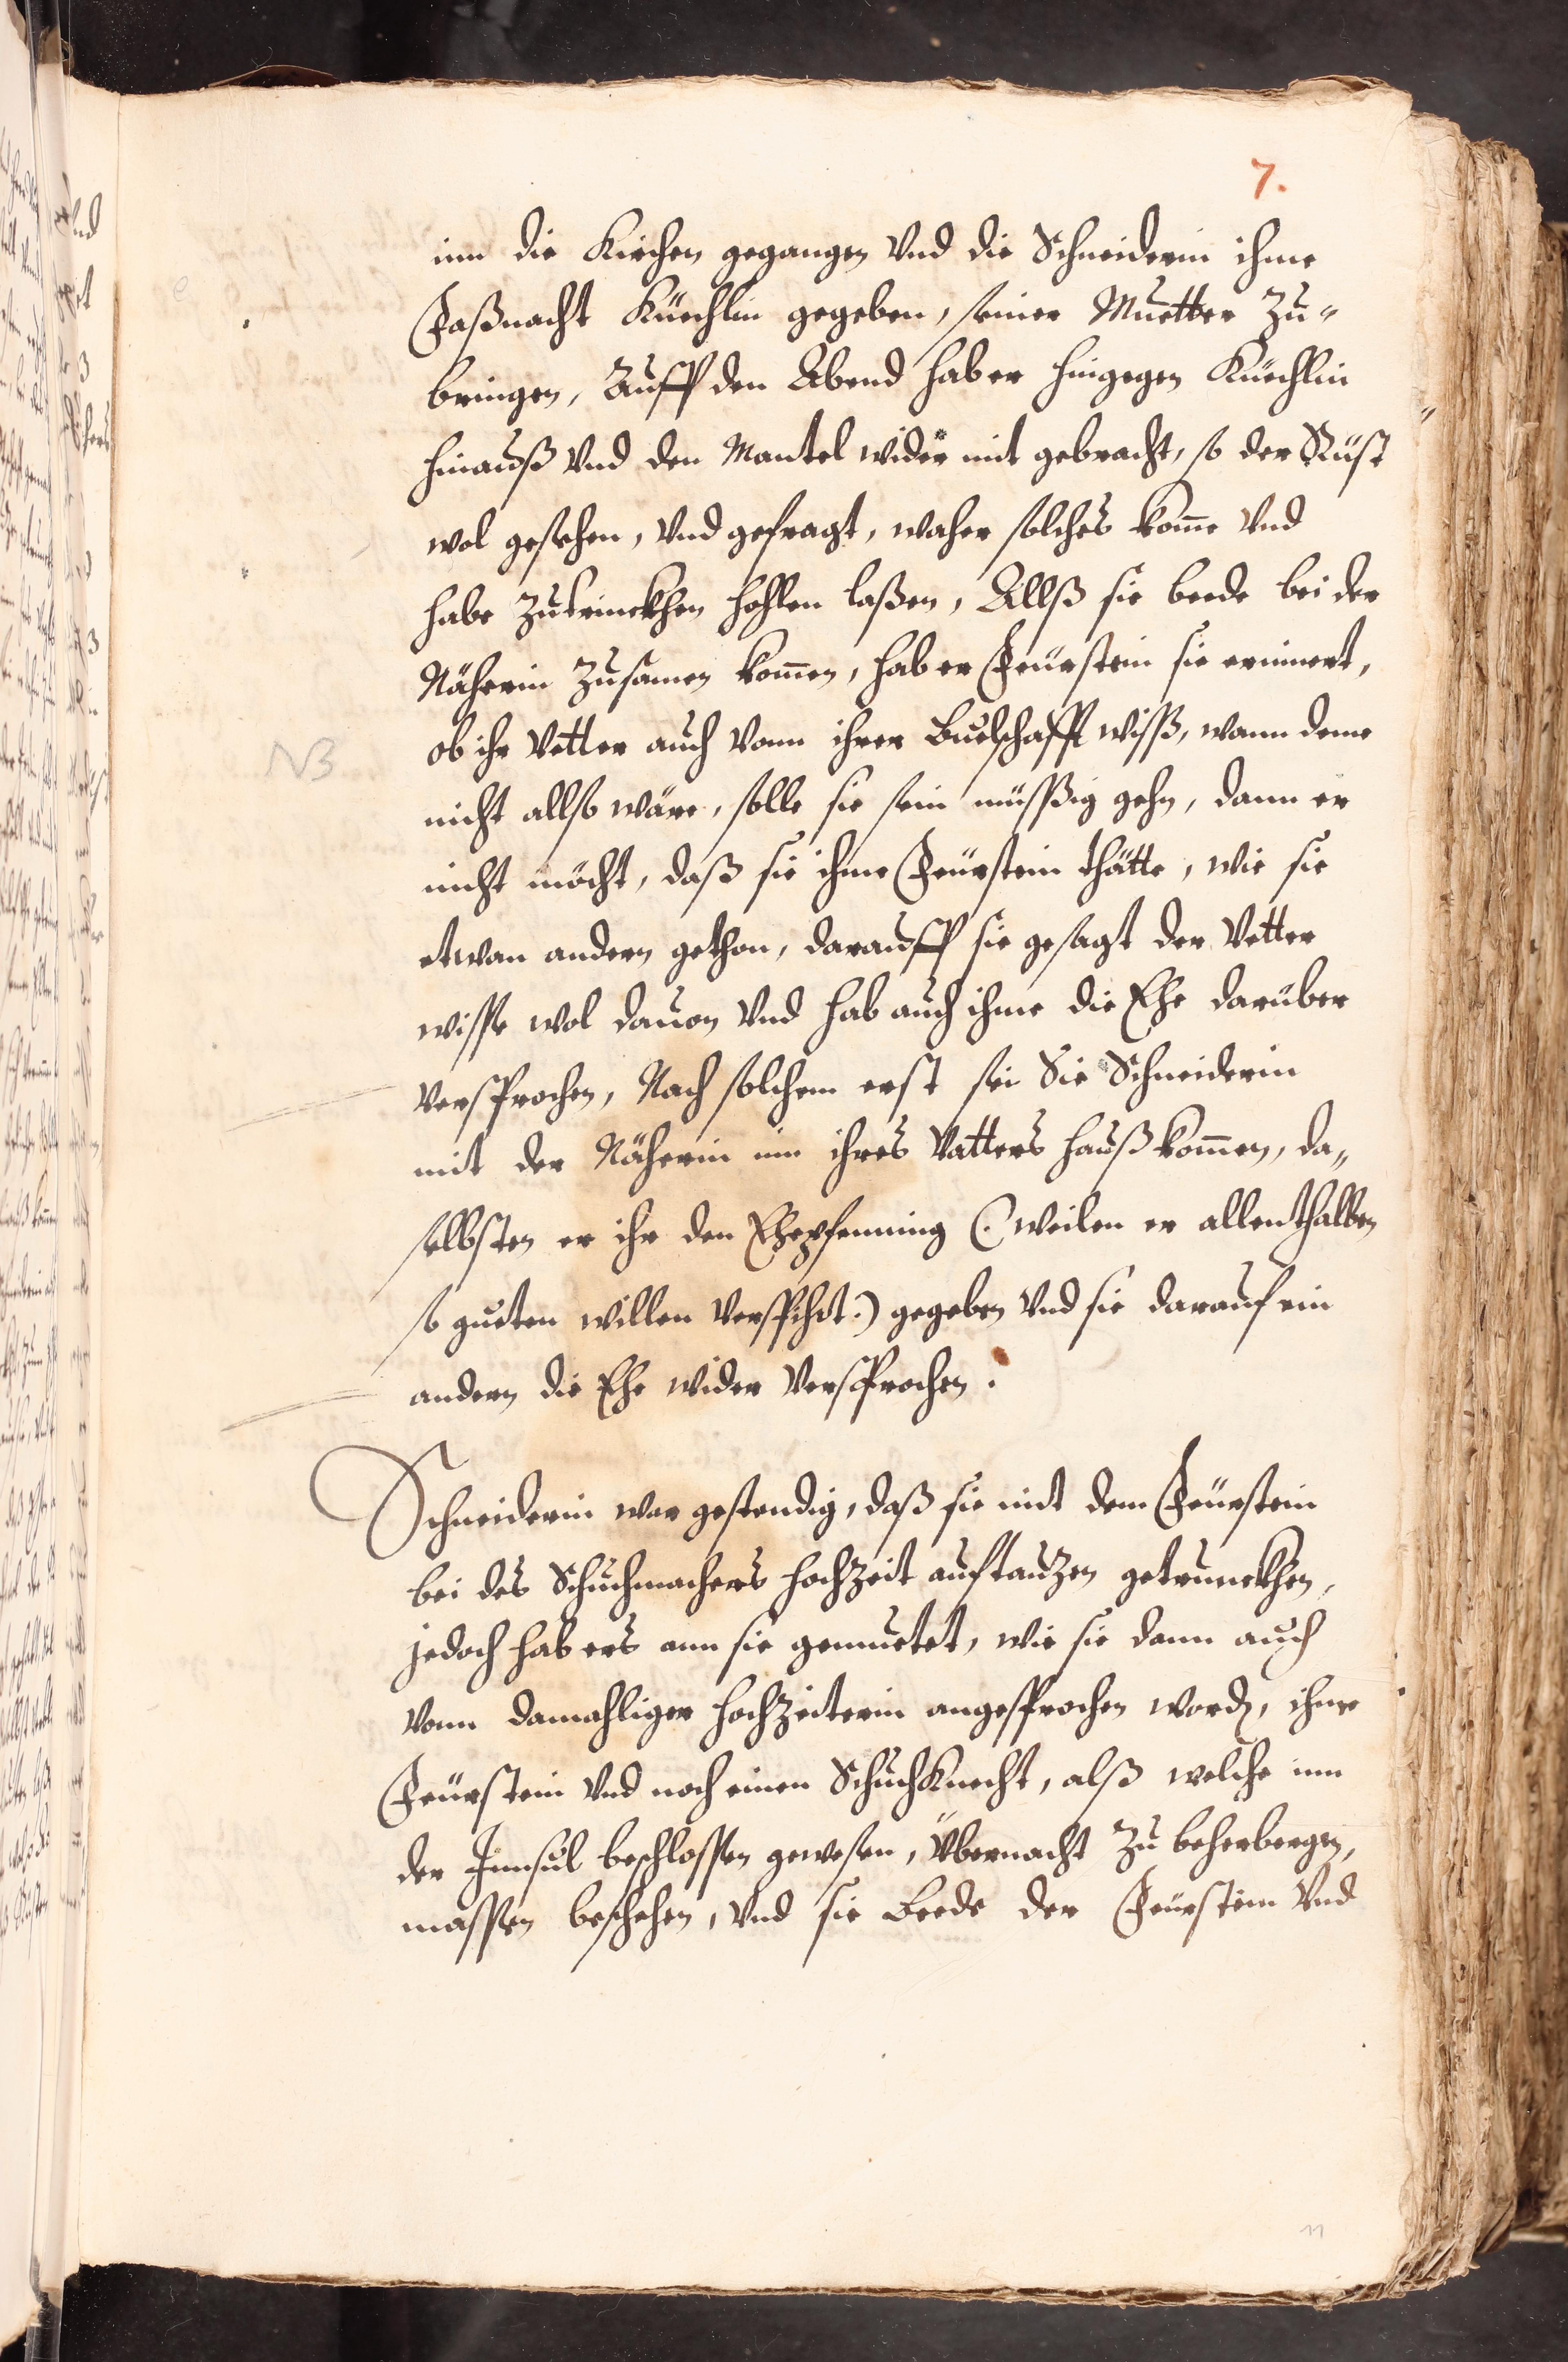 7.
inn die Kirchen gegangen Vnd die Schneiderin ihme
Faßnacht Küechlin gegeben, seiner Muetter Zu„
bringen, Auff den Abend hab er hingegen Küechlin
hinauß Vnd den Mantel wider mit gebracht, so der Rüst
wol gesehen, Vnd gefragt, waher solches kome Vnd
habe Zutrinckhen hohlen laßen, Allß sie beede bei der
Näherin Zusamen komen, hab er Feürstein sie erinnert,
ob ihr Vetter auch Vonn ihrer Buelschafft wiß, wann deme
NB
nicht allso wäre, solle sie sein müßig gehn, dann er
nicht möcht, daß sie ihme Feürstein thätte, wie sie
etwan andern gethon, darauff sie gesagt der Vetter
wisse wol dauon Vnd hab auch ihme die Ehe darüber
Versprochen, Nach solchem erst sei Sie Schneiderin
mit der Näherin inn ihres Vatters hauß komen, da„
selbsten er ihr den Ehepfenning (: weilen er allenthalben
so gueten willen Verspihrt :) gegeben Vnd sie darauf ein
andern die Ehe wider Versprochen.
Schneiderin war gestendig, daß sie mit dem Feürstein
bei des Schuchmachers hochZeit auftanzen getrunckhen,
jedoch hab ers ann sie gemuetet, wie sie dann auch
Vonn damahliger hochZeiterin angesprochen word, ihme
Feürstein Vnd noch einen SchuchKnecht, alß welche inn
der Innsul beschlossen gewesen, Vbernacht Zu beherbergen,
massen beschehen, Vnd sie Beede der Feürstein Vnd
11